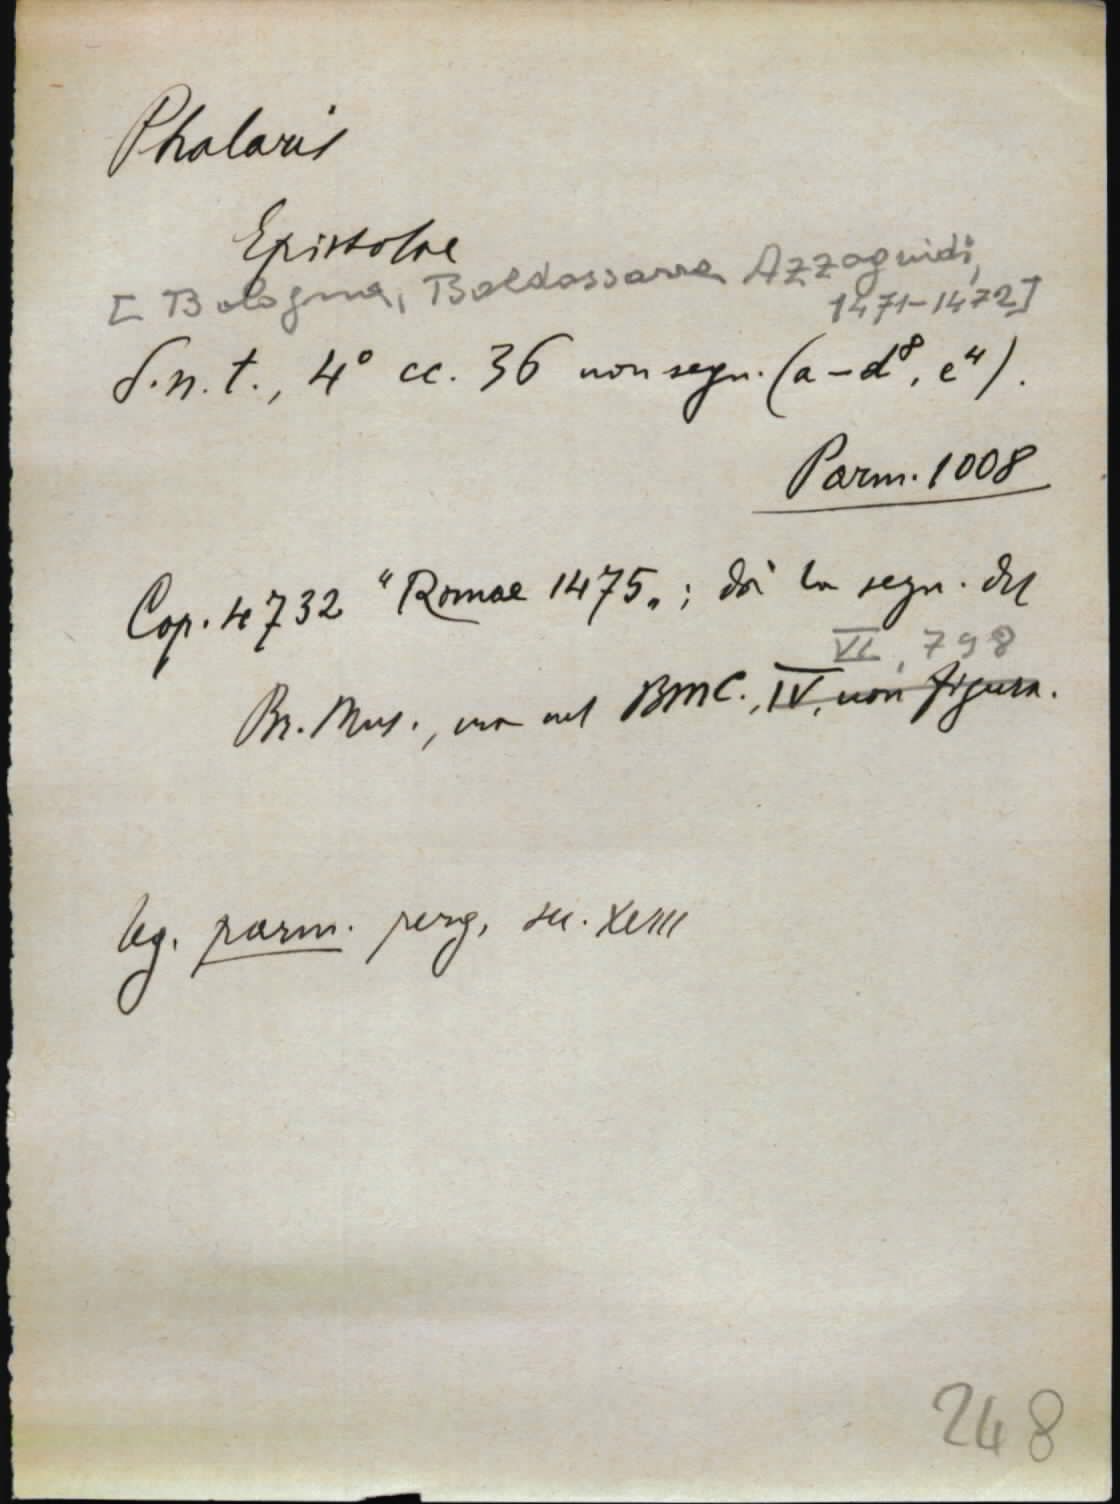 Phalaris
Epistolae
[Bologna, Baldassarre Azzoguidi,
1471-1472]
S.n.t., 4° cc. 36 non segn. (a-d⁸, e⁴).
Parm. 1008
Cop. 4732 "Romae 1475"; dà la segn. del
VI, 798
Br. Mus., ma nel BMC., IV, non figura.
leg. parm. perg. sec. XVIII
248